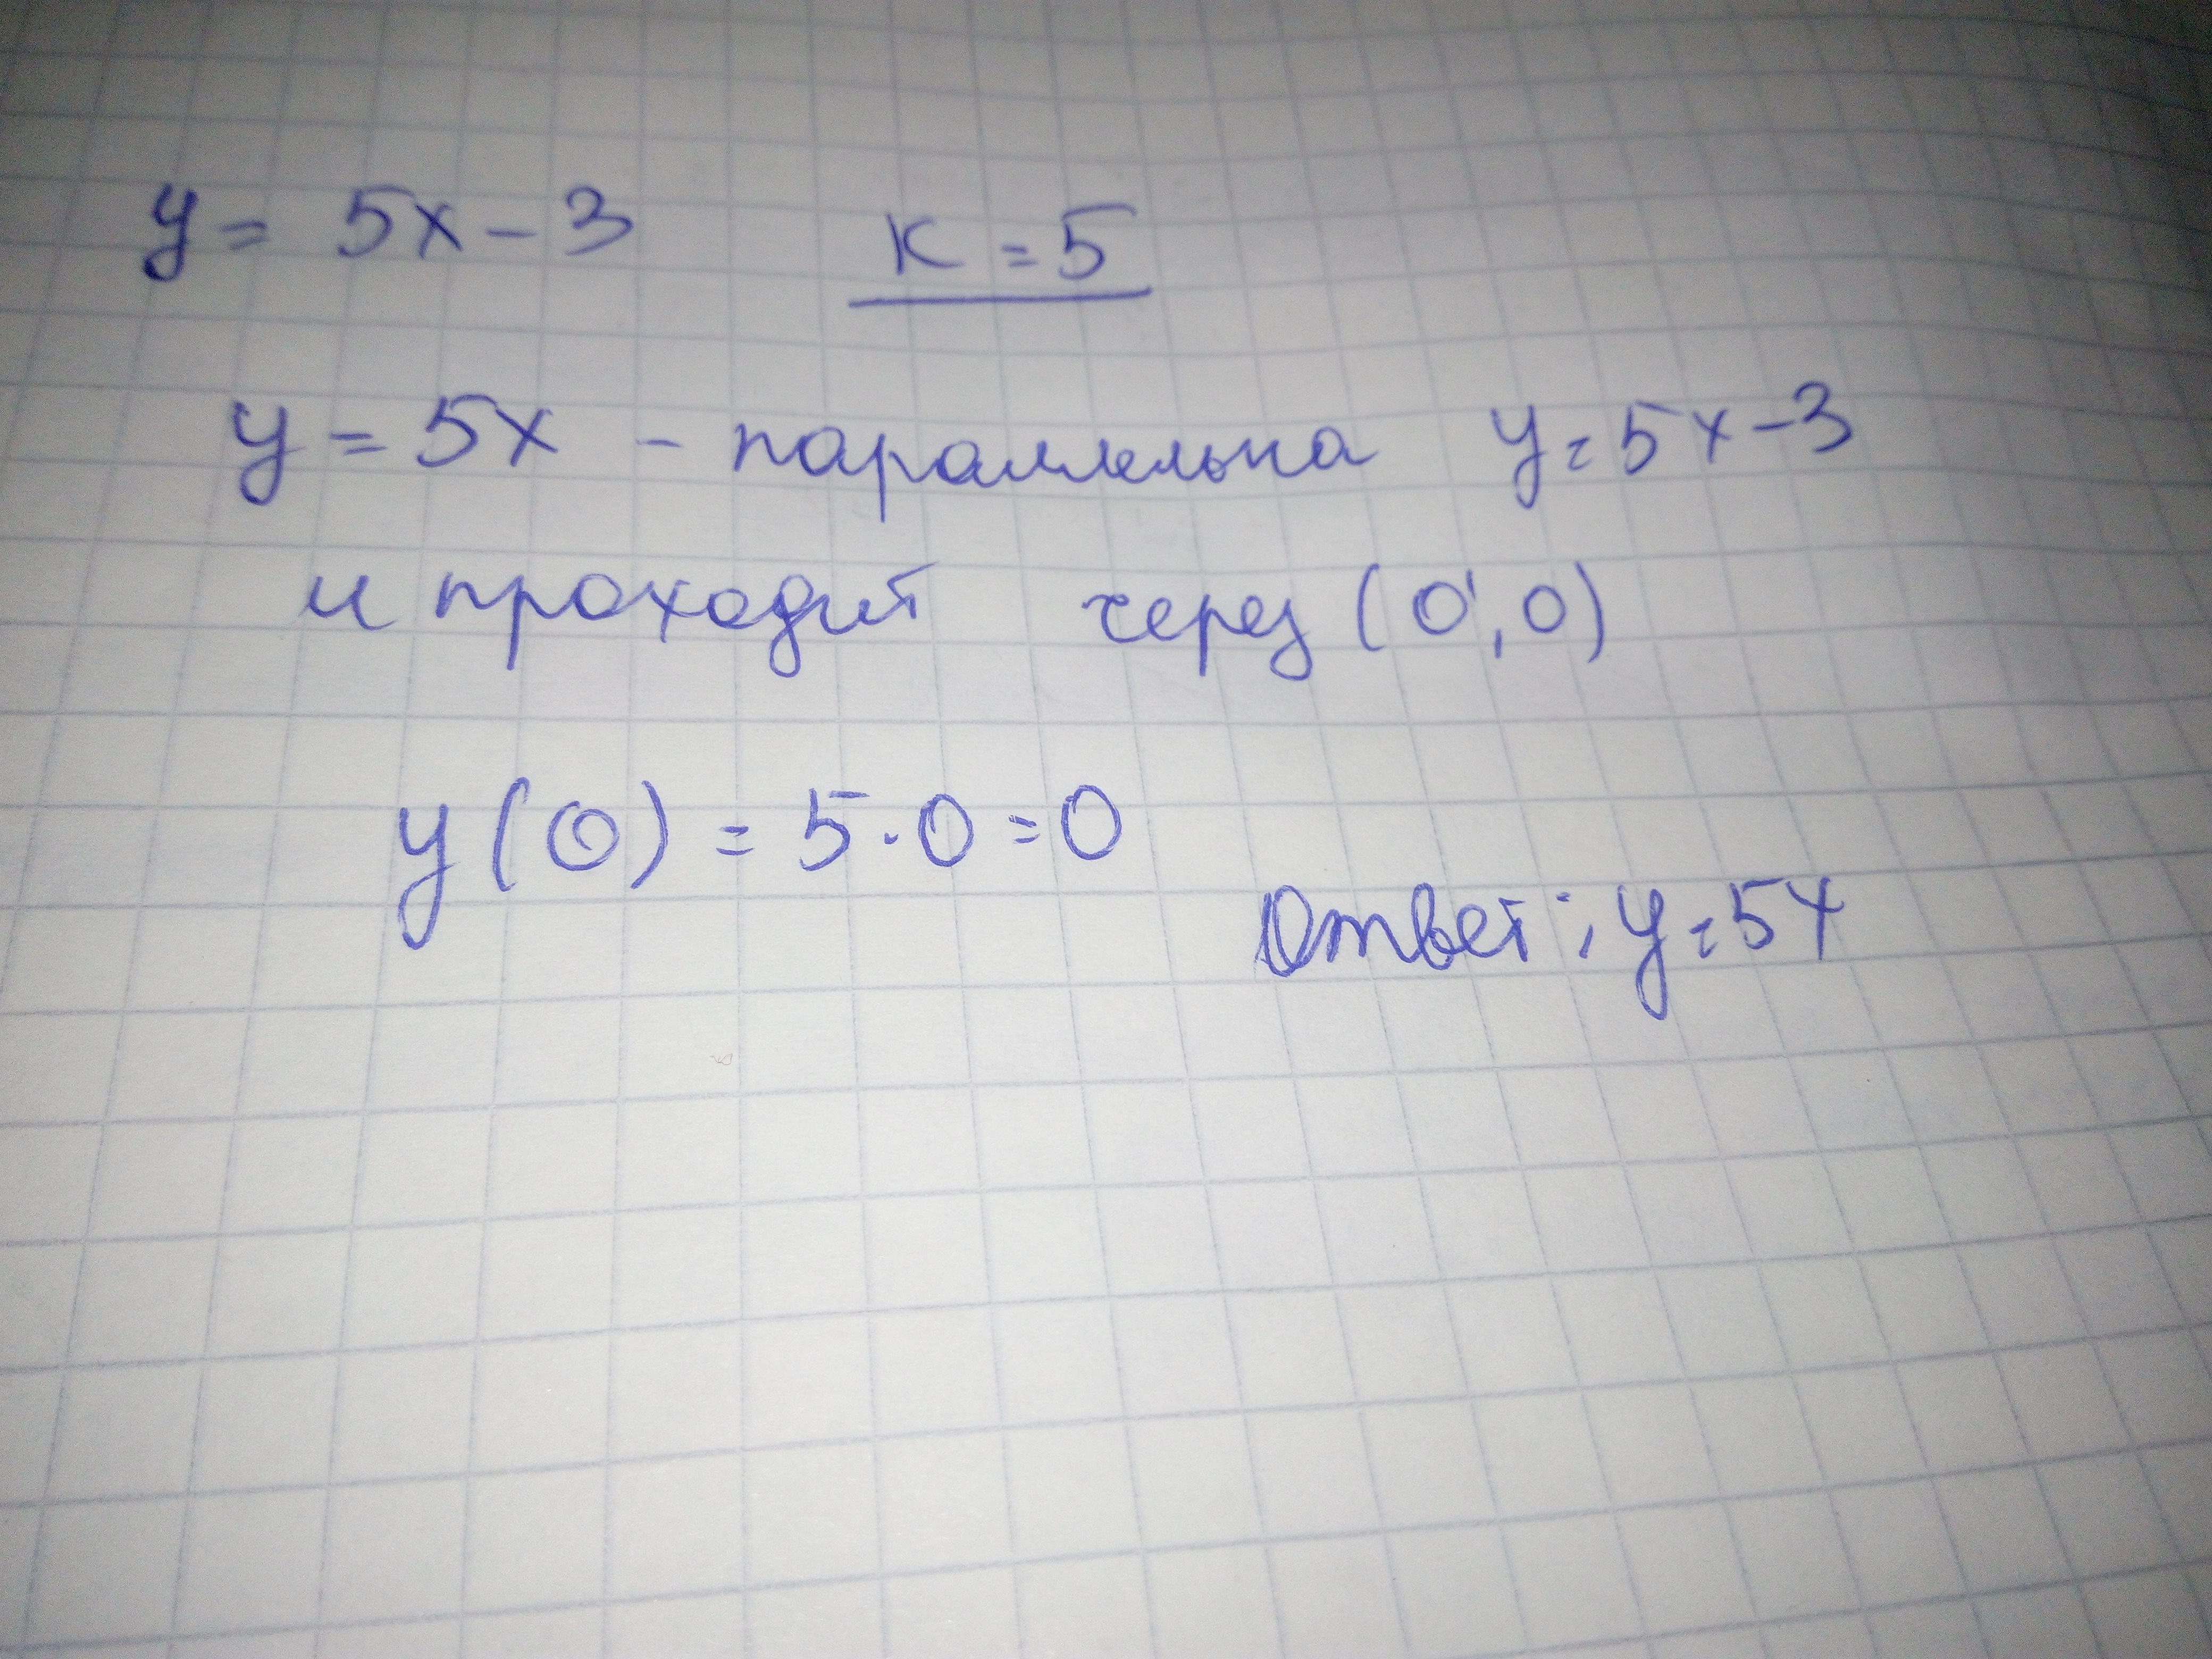 y = 5x - 3 K = 5
y = 5x - параллельна y = 5x - 3
и проходит через (0; 0)
y(0) = 5 · 0 = 0
Ответ: y = 5x